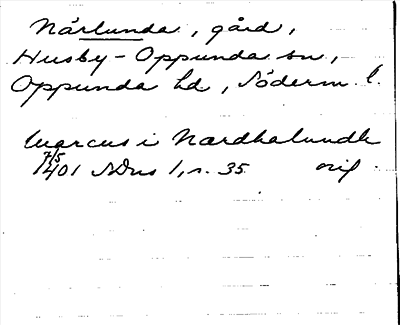 Närlunda, gård,
Husby-Oppunda sn,
Oppunda hd, Söderm. l.
Marcus i Nardhalundh
7/5
1401 SDns 1, s. 35. orig.